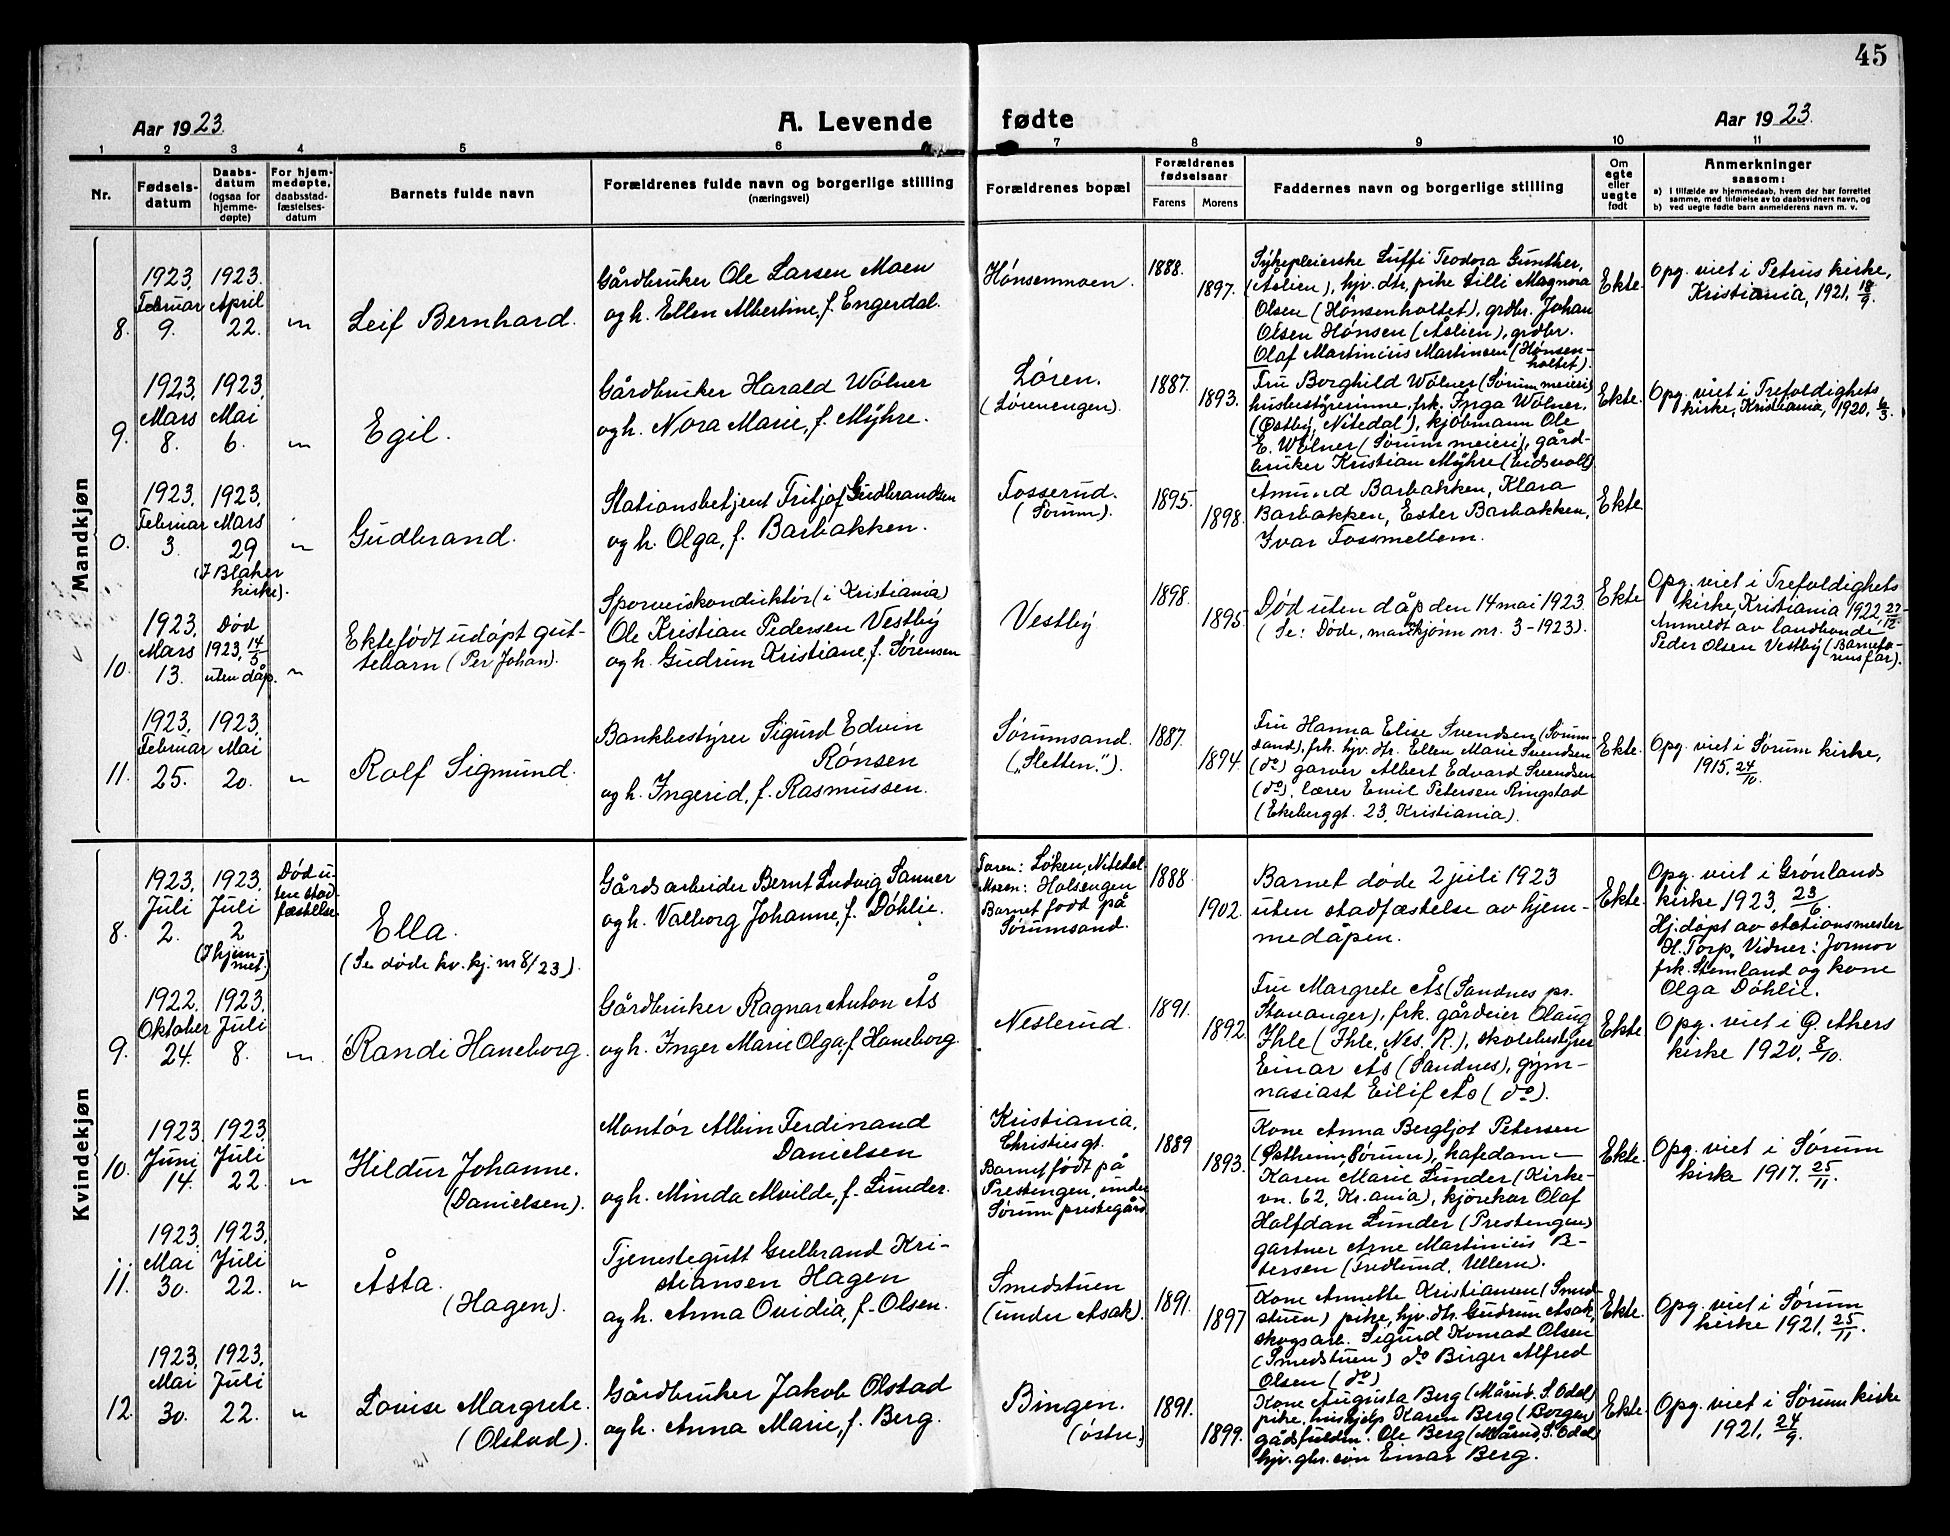 45
Aar 1923.
A. Levende fødte
Aar 1923.
1 2 3 4 5 6 7 8 9 10 11
Nr.
Fødsels-
datum
Daabs-
datum
(ogsaa for
hjemme-
døpte)
For hjem-
medøpte,
daabsstad-
fæstelses-
datum
Barnets fulde navn
Forældrenes fulde navn og borgerlige stilling
(næringsvei)
Forældrenes bopæl
Forældrenes
fødselsaar
Farens Morens
Faddernes navn og borgerlige stilling
Om
egte
eller
uegte
født
Anmerkninger
saasom:
a) i tilfælde av hjemmedaab, hvem der har forrettet
samme, med tilføielse av to daabsvidners navn, og
b) ved uegte fødte barn anmelderens navn m. v.
Mandkjøn
8.
1923.
Februar
9.
1923.
April
22.
"
Leif Bernhard.
Gårdbruker Ole Larsen Moen
og h. Ellen Albertine, f. Engerdal.
Hønsenmoen.
1888.
1897.
Sykepleierske Luffi Teodora Gunther,
(Åslien), hjv. dtr, pike Lilli Magnora
Olsen (Hønsenholtet), grdbr. Johan
Olsen Hønsen (Åslien), grdbr.
Olaf Martinius Martinsen (Hønsen-
holtet).
Ekte.
Opg. viet i Petrus kirke,
Kristiania, 1921, 18/9.
9.
1923.
Mars
8.
1923.
Mai
6.
"
Egil.
Gårdbruker Harald Wølner
og h. Nora Marie, f. Myhre.
Løren.
(Lørenengen).
1887.
1893.
Fru Borghild Wølner (Sørum meieri)
husbestyrerinne, frk. Inga Wølner,
(Østby, Nitedal), kjøbmann Ole
E. Wølner (Sørum meieri), gård-
bruker Kristian Myhre (Eidsvoll)
Ekte.
Opg. viet i Trefoldighets
kirke, Kristiania, 1920, 6/3.
0.
1923.
Februar
3.
1923.
Mars
29
(I Blaker
kirke).
"
Gudbrand.
Stationsbetjent Fritjof Gudbrandsen
og h. Olga, f. Barbakken.
Fosserud.
(Sørum).
1895.
1898.
Amund Barbakken, Klara
Barbakken, Ester Barbakken,
Ivar Fossmellem.
Ekte
10.
1923.
Mars
13.
Død
1923, 14/5
uten dåp.
"
Ektefødt udøpt gut-
tebarn (Per Johan).
Sporveiskonduktør (i Kristiania)
Ole Kristian Pedersen Vestby
og h. Gudrun Kristiane, f. Sørensen
Vestby
1898.
1895.
Død uten dåp den 14 mai 1923
(Se: Døde, mandkjønn nr. 3-1923).
Ekte
Opg. viet i Trefoldighets
kirke, Kristiania 1922, 27/12-
Anmeldt av landhandl.
Peder Olsen Vestby (Barnefa-
rens far).
11.
1923.
Februar
25.
1923.
Mai
20.
"
Rolf Sigmund.
Bankbestyrer Sigurd Edvin
Rønsen
og h. Ingerid, f. Rasmussen.
Sørumsand.
("Sletten.").
1887.
1894.
Fru Hanna Elise Svendsen (Sørum-
sand), frk. hjv. dtr. Ellen Marie Svendsen
(do) garver Albert Edvard Svendsen
(do), lærer Emil Petersen Ringstad
(Ekeberggt. 23, Kristiania).
Ekte.
Opg. viet i Sørum kirke,
1915, 24/10.
Kvindekjøn
8.
1923.
Juli
2.
1923.
Juli
2
(I hjem-
met)
Død u-
ten stad-
fæstelse.
Ella.
(Se døde kv. kj. nr 8/23).
Gårdsarbeider Bernt Ludvig Sanner
og h. Valborg Johanne, f. Døhlie.
Faren: Løken, Nitedal.
Moren: Halsengen
Barnet født på
Sørumsand.
1888.
1902.
Barnet døde 2 juli 1923
uten stadfæstelse av hjem-
medåpen.
Ekte.
Opg. viet i Grønlands
kirke 1923, 23/6.
Hj. døpt av stationsmester
H. Torp, Vidner: Jormor
frk. Stemland og kone
Olga Døhlie.
9.
1922.
Oktober
24.
1923.
Juli
8.
"
Randi Haneborg.
Gårdbruker Ragnar Anton Ås
og h. Inger Marie Olga, f. Haneborg.
Nesterud.
1891.
1892.
Fru Margrete Ås (Sandnes pr.
Stavanger), frk. gårdeier Olaug
Ihle (Ihle, Nes. R.), skolebestyrer
Einar Ås (Sandnes), gym-
nasiast Eilif Ås (do).
Ekte.
Opg. viet i G. Akers
kirke 1920, 8/10.
10.
1923.
Juni
14.
1923.
Juli
22.
"
Hildur Johanne.
(Danielsen).
Montør Albin Ferdinand
Danielsen
og h. Minda Alvilde, f. Lunder.
Kristiania,
Christiesgt.
Barnet født på
Prestengen, under
Sørum prestegård
1889
1893.
Kone Anna Bergljot Petersen
(Østheim, Sørum), kafedame
Karen Marie Lunder (Kirke-
vn. 62, Kr.ania), kjørekar Olaf
Halfdan Lunder (Prestengen)
gartner Arne Martinius
(Fredlund, Ullern).
Ekte.
Opg. viet i Sørum
kirke 1917. 25/11.
11.
1923.
Mai
30.
1923.
Juli
22.
"
Åsta.
(Hagen).
Tjenestegutt Gulbrand Kri-
stiansen Hagen
og h. Anna Ovidia, f. Olsen.
Smedstuen
(under Asak).
1891.
1897
Kone Annette Kristiansen (Smed-
stuen) pike, hjv. dtr. Gudrun Asak,
skogsarb. Sigurd Konrad Olsen
(Smedstuen) do Birger Alfred
Olsen (do)
Ekte.
Opg. viet i Sørum
kirke 1921, 25/11.
12.
1923.
Mai
30.
1923.
Juli
22.
"
Lovise Margrete.
(Olstad).
Gårdbruker Jakob Olstad
og h. Anna Marie, f. Berg.
Bingen.
(østre)
1891.
1899.
Kone Augusta Berg (Mårud, S. Odal)
pike, hushjelp Karen Berg (Borgen)
Ole Berg (Mårud, S. Odal)
hjv. gbr. søn Einar Berg.
Ekte.
Opg. viet i Sørum kirke
1921, 24/9.